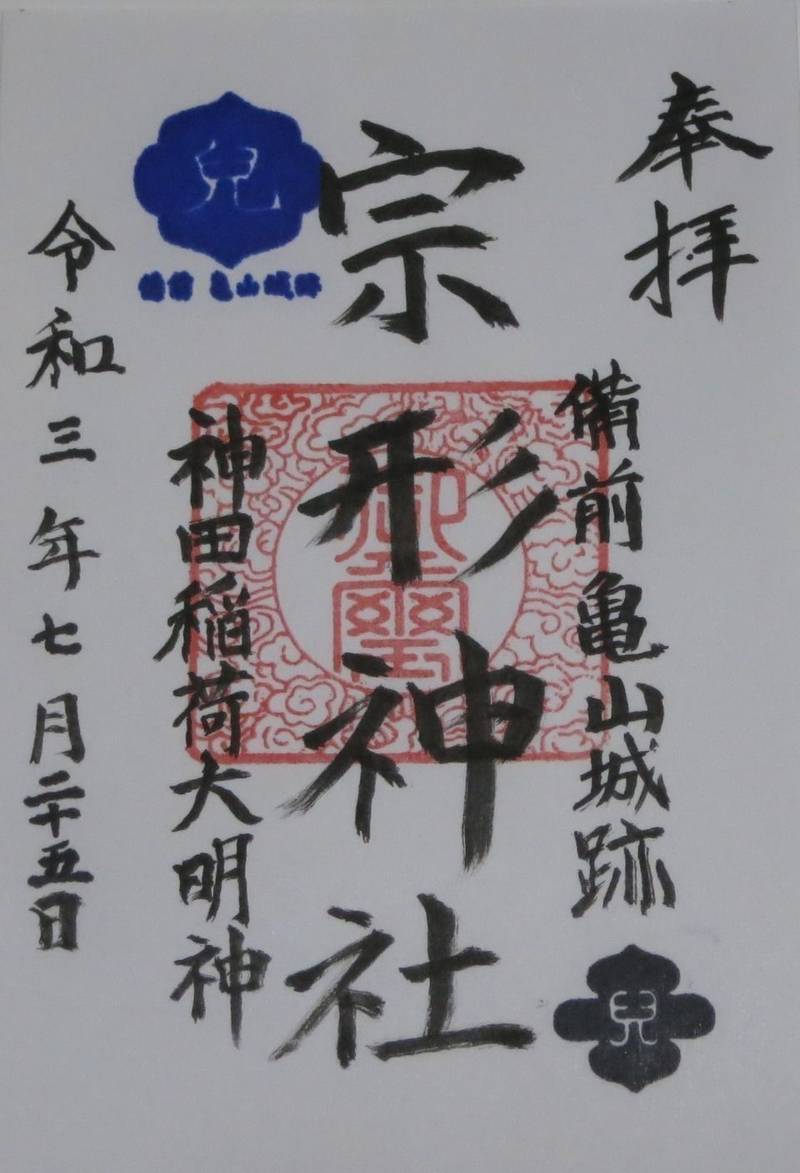 奉拝
備前亀山城跡
兒
宗形神社
御璽
兒
備前 亀山城跡
神田稲荷大明神
令和三年七月二十五日